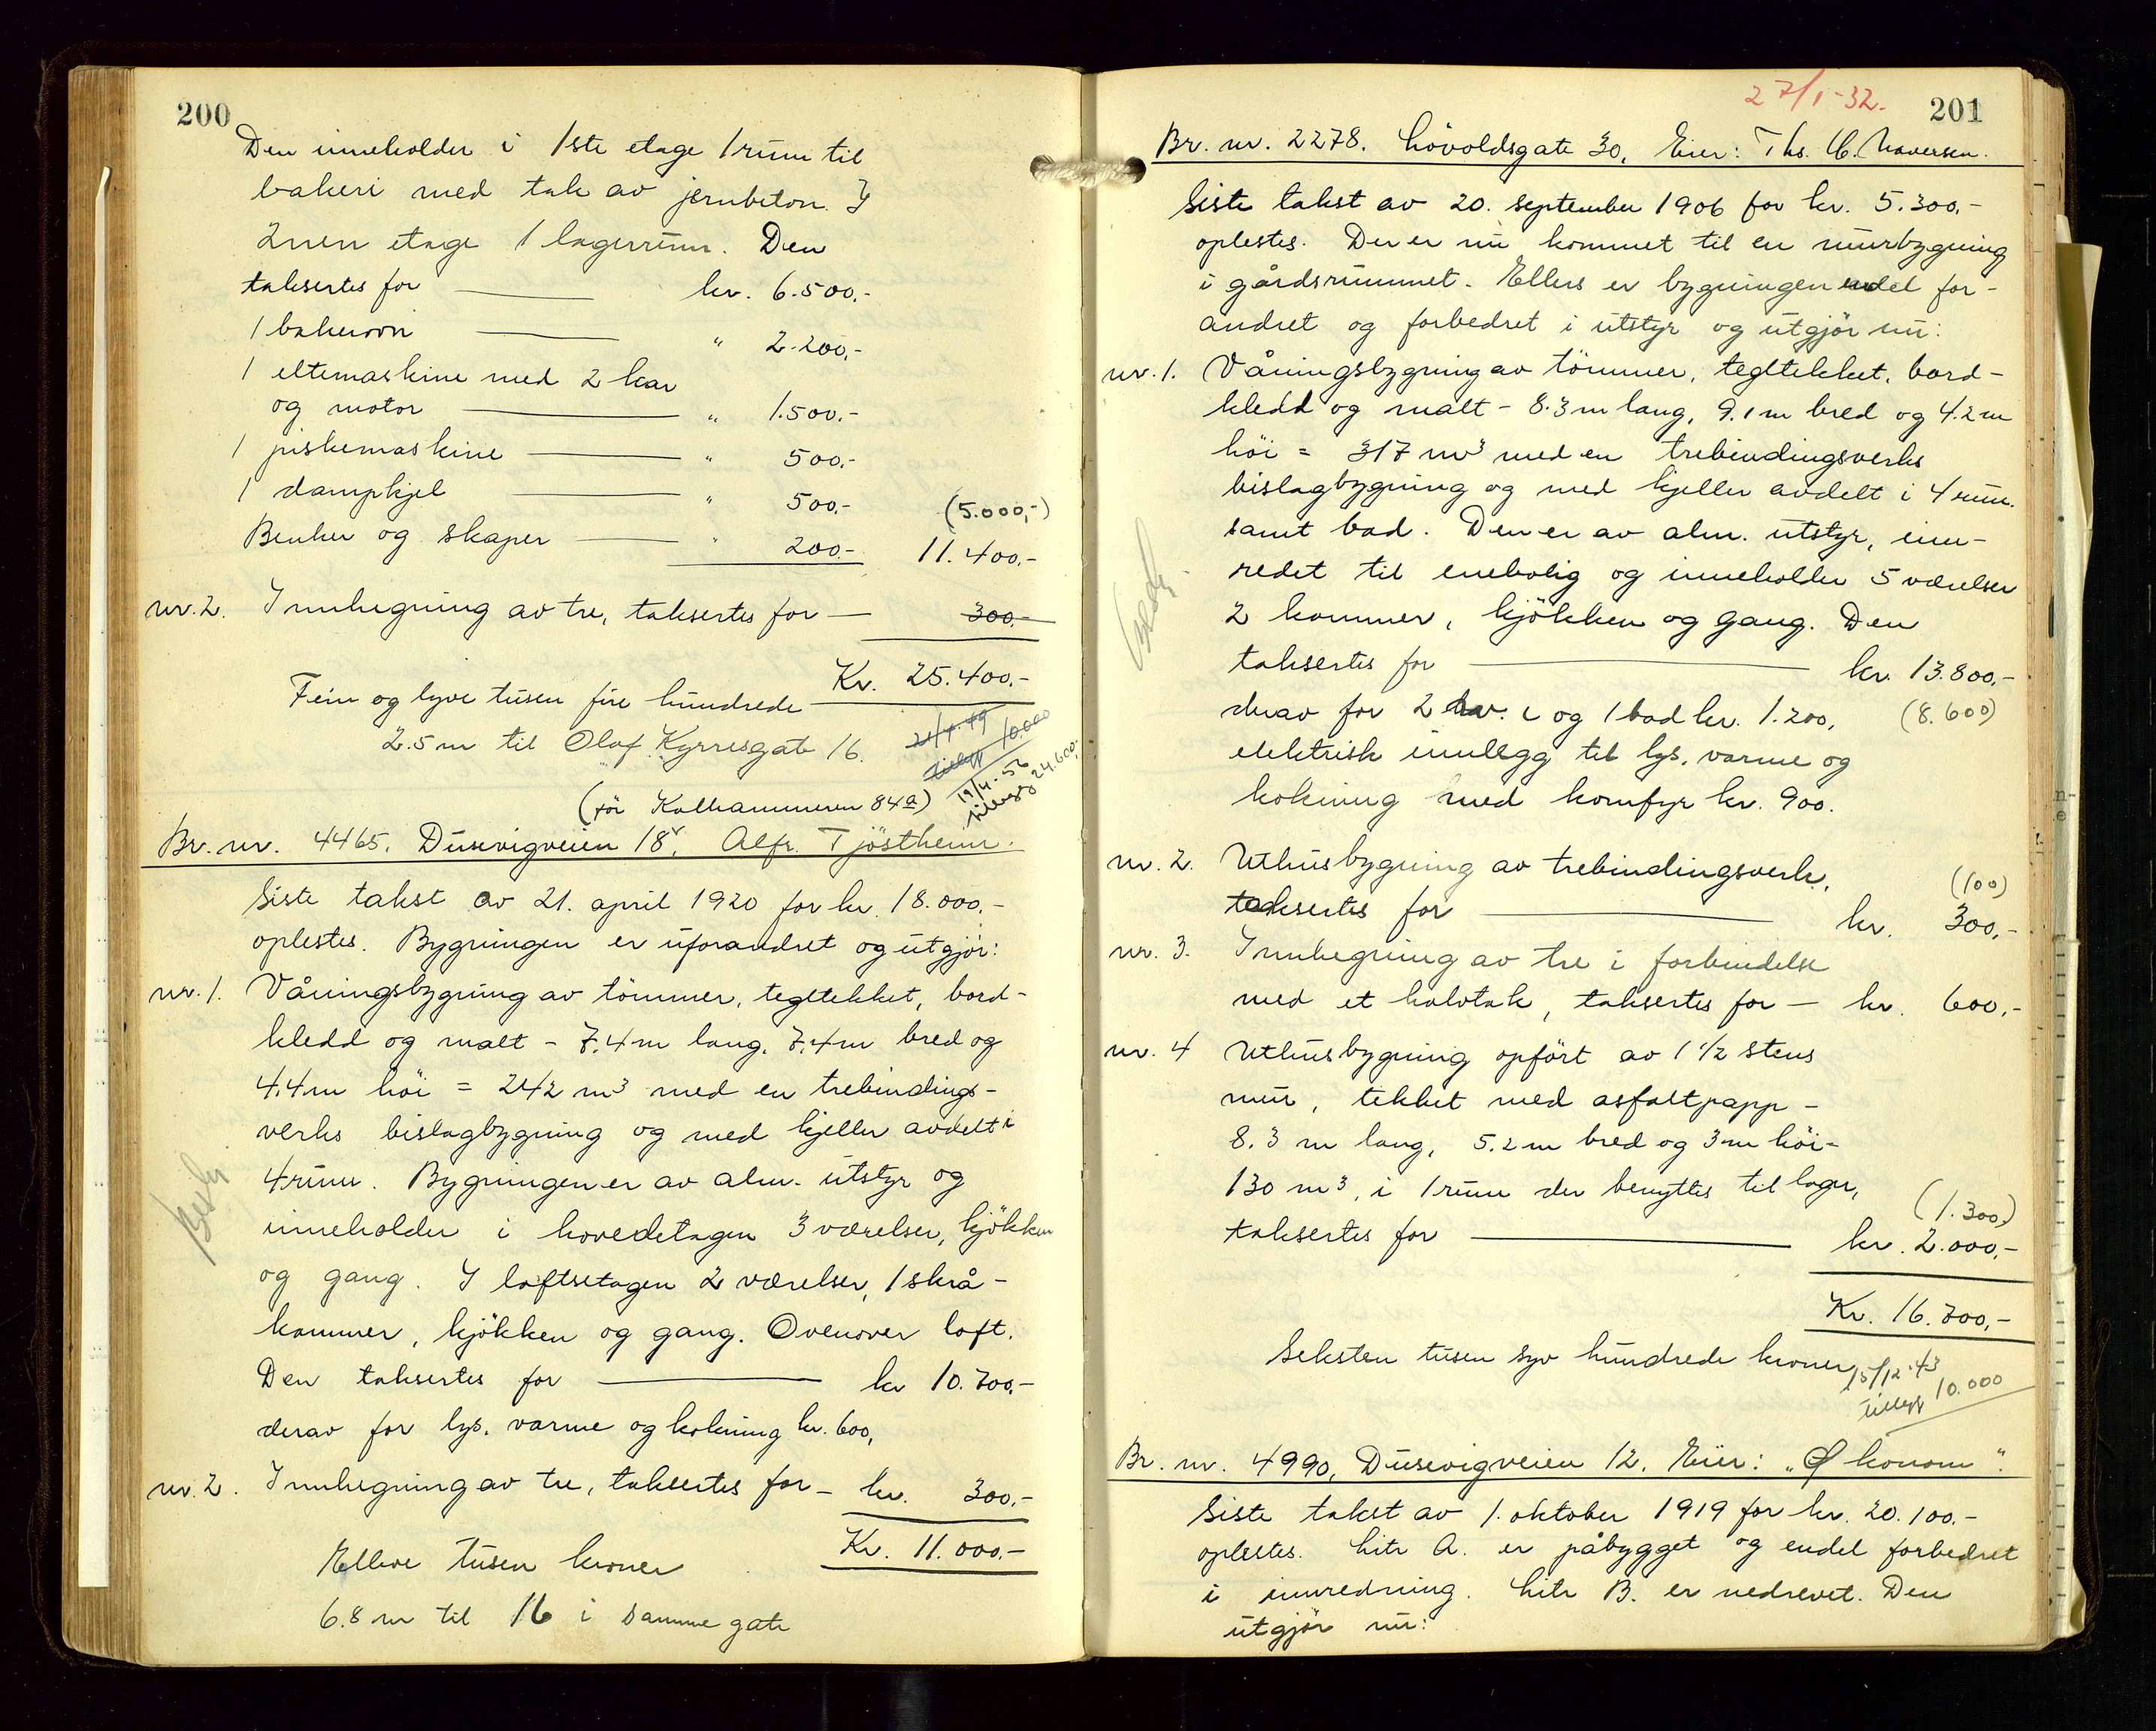 200
Den inneholder i 1ste etage 1 rum til
bakeri med tak av jernbeton. I
2nen etage 1 lagerrum. Den
takseres for kr. 6.500,-
1 bakerovn " 2.200,-
1 eltemaskine med 2 kar
og motor " 1.500,-
1 piskemaskine " 500,-
1 dampkjel " 500,- (5.000,-)
Benker og skaper " 200,- 11.400,-
nr. 2. Innhegning av tre, taksertes for — 300,-
Kr. 25.400,-
Fem og tyve tusen fire hundrede
2.5 m til Olaf Kyrresgate 16.
21/4.49
Tillegg 10.000
19/4.56
tillegg 24.600,-
(før Kalhammeren 84a)
Br. nr. 4465. Dusevigveien 18, Alfr. Tjöstheim.
Siste takst av 21. april 1920 for kr. 18.000,-
oplestes. Bygningen er uforandret og utgjör:
nr. 1. Våningsbygning av tömmer, tegltekket, bord-
kledd og malt - 7,4 m lang, 7,4 m bred og
4,4 m höi = 242 m3 med en trebindings-
verks bislagbygning og med kjeller avdelt i
4 rum. Bygningen er av alm. utstyr og
inneholder i hovedetagen 3 værelser, kjökken
og gang. I loftsetagen 2 værelser, 1 skrå-
kammer, kjökken og gang. Ovenover loft.
Den taksertes for kr 10.700,-
derav for lys, varme og kokning kr. 600,
nr. 2. Innhegning av tre, taksertes for - kr. 300,-
Kr. 11.000,-
Elleve tusen kroner
6.8 m til 16 i samme gate
27/1-32.
201
Br. nr. 2278. Lövoldsgate 30, Eier: Ths. Haversen.
Siste takst av 20. september 1906 for kr. 5.300,-
oplestes. Der er nu kommet til en murbygning
i gårdsrummet. Ellers er bygningen endel for-
andret og forbedret i utstyr og utgjör nu:
nr. 1. Våningsbygning av tömmer, tegltekket, bord-
kledd og malt - 8.3 m lang, 9.1 m bred og 4.2 m
höi = 317 m3 med en trebindingsverks
bislagbygning og med kjeller avdelt i 4 rum.
samt bad. Den er av alm. utstyr, inn-
redet til enebolig og inneholder 5 værelser
2 kammer, kjökken og gang. Den
taksertes for kr. 13.800,-
derav for 2 w. c og 1 bad kr. 1.200, (8.600)
elektrisk innlegg til lys, varme og
kokning med komfyr kr. 900.
nr. 2. Uthusbygning av trebindingsverk, (100)
taksertes for kr. 300,-
nr. 3. Innhegning av tre i forbindelse
med et halvtak, taksertes for — kr. 600,-
nr. 4 Uthusbygning opfört av 1 1/2 stens
mur, tekket med asfaltpapp -
8.3 m lang, 5.2 m bred og 3 m höi -
130 m3, i 1 rum der benyttes til lager, (1.300,)
taksertes for kr. 2.000,-
Kr. 16.700,-
Seksten tusen syv hundrede kroner
15/12.43
Tillegg 10.000
Br. nr. 4990, Dusevigveien 12. Eier: "Økonom".
Siste takst av 1. oktober 1919 for kr. 20.100,-
oplestes. Litr A. er påbygget og endel forbedret
i innredning. Litr B. er nedrevet. Den
utgjör nu: